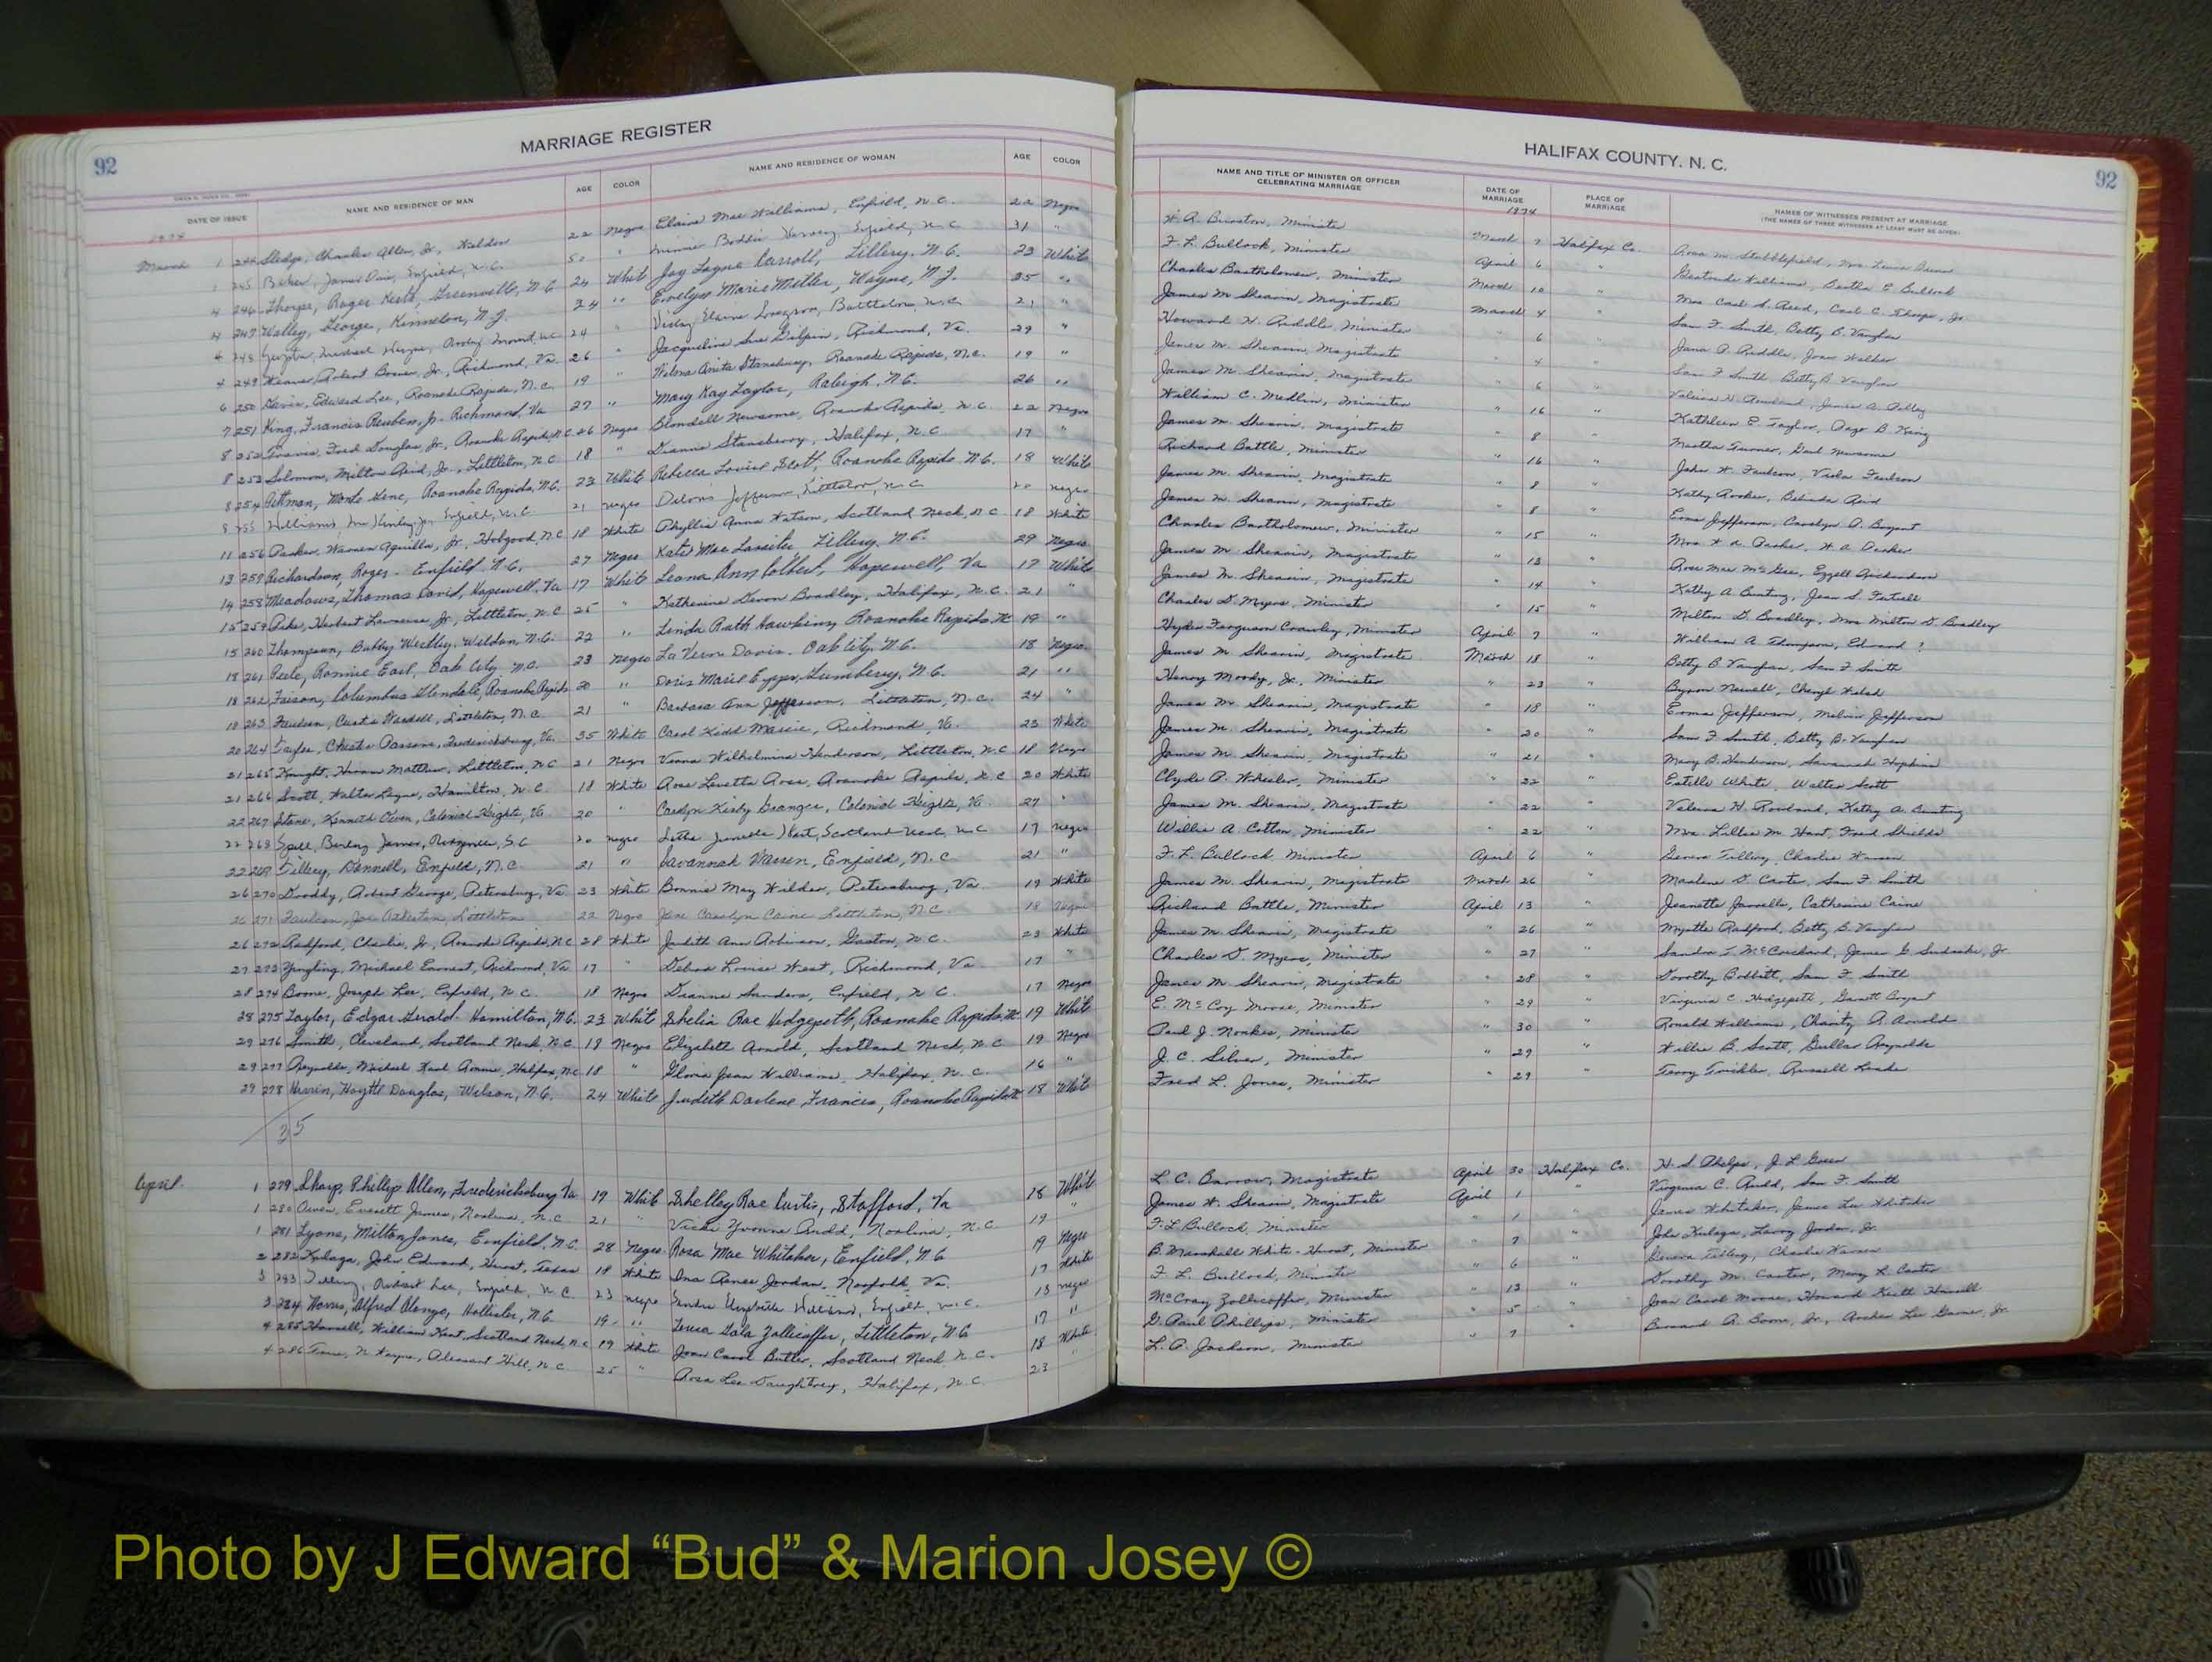 92
MARRIAGE REGISTER
DATE OF ISSUE NAME AND RESIDENCE OF MAN AGE COLOR NAME AND RESIDENCE OF WOMAN AGE COLOR
1974
March 1 244 Sledge, Charles Allen, Jr., Weldon 22 Negro Elaine Mae Williams, Enfield, N.C. 22 Negro
1 245 James Enfield, N.C. 50 " Minnie Boddie Enfield, N.C. 31 "
4 246 Thorpe, Roger Keith, Greenville, N.C. 24 White Joy Layne Carroll, Tillery, N.C. 23 White
4 247 Walley, George, Kinnelon, N.J. 24 " Evelyn Marie Miller, Wayne, N.J. 35 "
4 248 Michael Wayne, Rocky Mount, N.C. 24 " Vicky Elaine Battleboro, N.C. 21 "
4 249 Weaver, Robert Jr., Richmond, Va. 26 " Jacqueline Sue Gilpin, Richmond, Va. 29 "
6 250 Davis, Edward Lee, Roanoke Rapids, N.C. 19 " Wilma Anita Stansbury, Roanoke Rapids, N.C. 19 "
7 251 King, Francis Reuben, Jr. Richmond, Va 27 " Mary Kay Taylor, Raleigh, N.C. 26 "
8 252 Travis, Fred Douglas, Jr., Roanoke Rapids, N.C. 46 Negro Blondell Newsome, Roanoke Rapids, N.C. 22 Negro
8 253 Solomon, Milton Reid, Jr., Littleton, N.C. 18 " Dianne Stansberry, Halifax, N.C. 17 "
8 254 Pittman, Monte Gene, Roanoke Rapids, N.C. 23 White Rebecca Louise Scott, Roanoke Rapids, N.C. 18 White
8 255 Williams, Mc Kinley, Jr., Enfield, N.C. 21 Negro Deloris Jefferson, Littleton, N.C. 20 Negro
11 256 Parker, Warren Aquilla, Jr., Hobgood, N.C. 18 White Phyllis Anna Watson, Scotland Neck, N.C. 18 White
13 257 Richardson, Roger - Enfield N.C. 27 Negro Katie Mae Lassiter Tillery, N.C. 29 Negro
14 258 Meadows, Thomas David, Hopewell, Va 17 White Leona Ann Colbert, Hopewell, Va 17 White
15 259 Pike, Herbert Lawrence, Jr., Littleton, N.C. 25 " Katherine Devon Bradley, Halifax, N.C. 21 "
15 260 Thompson, Bobby Westley, Weldon, N.C. 22 " Linda Ruth Hawkins, Roanoke Rapids, N.C. 19 "
18 261 Peele, Ronnie Earl, Oak City, N.C. 23 Negro La Vern Davis - Oak City, N.C. 18 Negro
18 262 Faison, Columbus Glendale, Roanoke Rapids 20 " Doris Marie Epps, Lumberg, N.C. 21 "
18 263 Faulcon, Curtis Wardell, Littleton, N.C. 21 " Barbara Ann Jefferson, Littleton, N.C. 24 "
20 264 Taylor, Chester Parsons, Fredericksburg, Va. 35 White Carol Kidd Massie, Richmond, Va. 23 White
21 265 Knight, Hiram Matthew, Littleton, N.C. 21 Negro Verna Wilhelmina Henderson, Littleton, N.C. 18 Negro
21 266 Scott, Walter Layne, Hamilton, N.C. 18 White Rose Levetta Ross, Roanoke Rapids, N.C. 20 White
22 267 Stone, Kenneth Owen, Colonial Heights, Va. 20 " Carolyn Kirby Granger, Colonial Heights, Va. 27 "
22 268 James, Ridgeville, S.C. 20 Negro Letha Hart, Scotland Neck, N.C. 17 Negro
22 269 Tillery, Donnell, Enfield, N.C. 21 " Savannah Warren, Enfield, N.C. 21 "
26 270 Robert George, Petersburg, Va. 23 White Bonnie May Wilder, Petersburg, Va. 19 White
26 271 Faulcon, Joe Littleton 22 Negro Jane Carolyn Caine, Littleton, N.C. 18 Negro
26 272 Radford, Charlie, Jr., Roanoke Rapids, N.C. 28 White Judith Ann Robinson, Gaston, N.C. 23 White
27 273 Yingling, Michael Earnest, Richmond, Va 17 " Debra Louise West, Richmond, Va. 17 "
28 274 Boone, Joseph Lee, Enfield, N.C. 18 Negro Dianne Sanders, Enfield, N.C. 17 Negro
28 275 Taylor, Edgar Gerald - Hamilton, N.C. 23 White Shelia Rae Hedgepeth, Roanoke Rapids, N.C. 19 White
29 276 Smith, Cleveland, Scotland Neck, N.C. 18 Negro Elizabeth Arnold, Scotland Neck, N.C. 19 Negro
29 277 Reynolds, Michael Halifax, N.C. 18 " Gloria Jean Williams, Halifax, N.C. 16 "
29 278 Herrin, Hoytt Douglas, Wilson, N.C. 24 White Judith Darlene Francis, Roanoke Rapids, N.C. 18 White
35
April 1 279 Sharp, Phillip Allen, Fredericksburg Va 19 White Shelley Rae Curtis, Stafford, Va 18 White
1 280 Owen, Everett James, Norlina, N.C. 21 " Vicki Yvonne Rudd, Norlina, N.C. 19 "
1 281 Lyons, Milton Jones, Enfield, N.C. 28 Negro Rosa Mae Whitaker, Enfield, N.C. 19 Negro
2 282 Kulaga, John Edward, Hurst, Texas 18 White Ina Renee Jordan, Norfolk, Va. 17 White
3 283 Tillery, Robert Lee, Enfield, N.C. 23 Negro Enfield, N.C. 18 Negro
3 284 Harris, Alfred Alonzo, Hollister, N.C. 19 " Teresa Gala Zollicoffer, Littleton, N.C. 17 "
4 285 Harrell, William Kent, Scotland Neck, N.C. 19 White Joan Carol Butler, Scotland Neck, N.C. 18 White
4 286 N. Wayne, Pleasant Hill, N.C. 25 " Rosa Lee Daughtrey, Halifax, N.C. 23 "
HALIFAX COUNTY, N. C.
92
NAME AND TITLE OF MINISTER OR OFFICER CELEBRATING MARRIAGE DATE OF MARRIAGE PLACE OF MARRIAGE NAMES OF WITNESSES PRESENT AT MARRIAGE
(THE NAMES OF THREE WITNESSES AT LEAST MUST BE GIVEN)
1974
W. A. Brinston, Minister March 2 Halifax Co. Rosa M. Stubblefield, Mrs.
F. L. Bullock, Minister April 6 " Gertrude Williams, Bertha E. Bullock
Charles Bartholomew, Minister March 10 " Mrs. Carl S. Reed, Carl C. Thorpe, Jr.
James M. Shearin, Magistrate March 4 " Sam F. Smith, Betty B. Vaughan
Howard W. Riddle, Minister 6 " Jana P. Riddle, Joan Walker
James M. Shearin, Magistrate " 4 " Sam F. Smith, Betty B. Vaughan
James M. Shearin, Magistrate " 6 " Valeria H. Rowland, James A.
William C. Medlin, Minister " 16 " Kathleen E. Taylor, Page B. King
James M. Shearin, Magistrate " 8 " Martha Turner, Newsome
Richard Battle, Minister " 16 " John W. Faulcon, Viola Faulcon
James M. Shearin, Magistrate " 8 " Kathy Belinda Reid
James M. Shearin, Magistrate " 8 " Erma Jefferson, Carolyn A. Bryant
Charles Bartholomew, Minister " 15 " Mrs. W. A. Parker, W. A. Parker
James M. Shearin, Magistrate " 13 " Rose Mae McGee, Ezzell Richardson
James M. Shearin, Magistrate " 14 " Kathy A. Bunting, Jean S. Futrell
Charles D. Myers, Minister " 15 " Milton D. Bradley, Mrs. Milton D. Bradley
Hyder Ferguson Crawley, Minister April 7 " William A. Thompson, Edward ?
James M. Shearin, Magistrate March 18 " Betty B. Vaughan, Sam F. Smith
Henry Moody, Jr., Minister " 23 " Byron Newell, Cheryl
James M. Shearin, Magistrate " 18 " Erma Jefferson, Melvin Jefferson
James M. Shearin, Magistrate " 20 " Sam F. Smith, Betty B. Vaughan
James M. Shearin, Magistrate " 21 " Mary B. Henderson, Savannah Hopkins
Clyde P. Wheeler, Minister " 22 " Estelle White, Walter Scott
James M. Shearin, Magistrate " 22 " Valeria H. Rowland, Kathy A. Bunting
Willie A. Cotton, Minister " 22 " Mrs. Lillie M. Hart, Fred Shields
F. L. Bullock, Minister April 6 " Geneva Tillery, Charlie Warren
James M. Shearin, Magistrate March 26 " Marlene D. Carter, Sam F. Smith
Richard Battle, Minister April 13 " Jeanette Catherine Caine
James M. Shearin, Magistrate " 26 " Myrtle Radford, Betty B. Vaughan
Charles D. Myers, Minister " 27 " Sandra L. James
James M. Shearin, Magistrate " 28 " Dorothy Bobbitt, Sam F. Smith
E. McCoy Moose, Minister " 29 " Virginia C. Hedgepeth, Garrett Bryant
Paul J. Noakes, Minister " 30 " Ronald Williams, Charity R. Arnold
J. C. Silver, Minister " 29 " Willie B. Scott, Reynolds
Fred L. Jones, Minister " 29 " Terry Russell
L. C. Barrow, Magistrate April 30 Halifax Co. H. S. Phelps, J. L. Green
James M. Shearin, Magistrate April 1 " Virginia C. Rudd, Sam F. Smith
F. L. Bullock, Minister 1 " James Whitaker, James Lee Whitaker
B. Marshall White-Hurst, Minister " 7 " John Kulaga, Larry Jordan, Sr.
F. L. Bullock, Minister " 6 " Geneva Tillery, Charlie Warren
McCray Zollicoffer, Minister " 13 " Dorothy M. Carter, Mary L. Carter
G. Paul Phillips, Minister " 5 " Joan Carol Moose, Howard Keith Harrell
L. P. Jackson, Minister " 7 " Bernard R. Boone, Jr., Archer Lee Garner, Jr.
Photo by J Edward “Bud” & Marion Josey ©